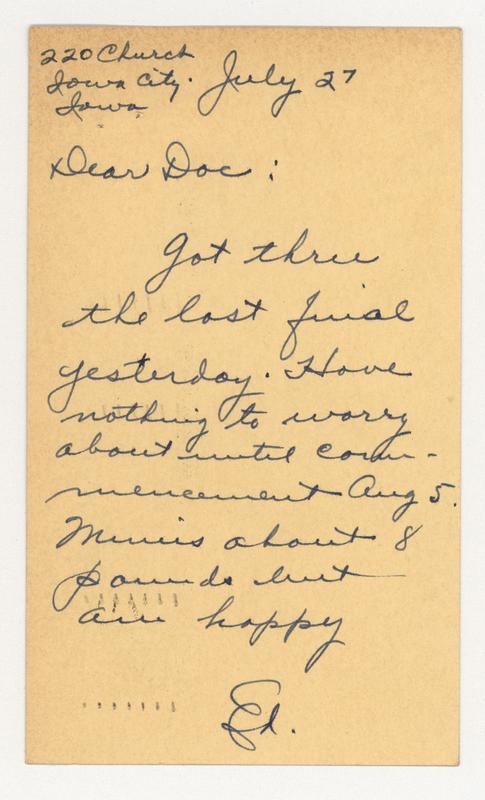 220 Church
Iowa City. July 27
Iowa
Dear Doc :
Got thru
the last finial
yesterday. Have
nothing to worry
about until com-
mencement Aug 5.
Minus about 8
pounds but
am happy
Ed.